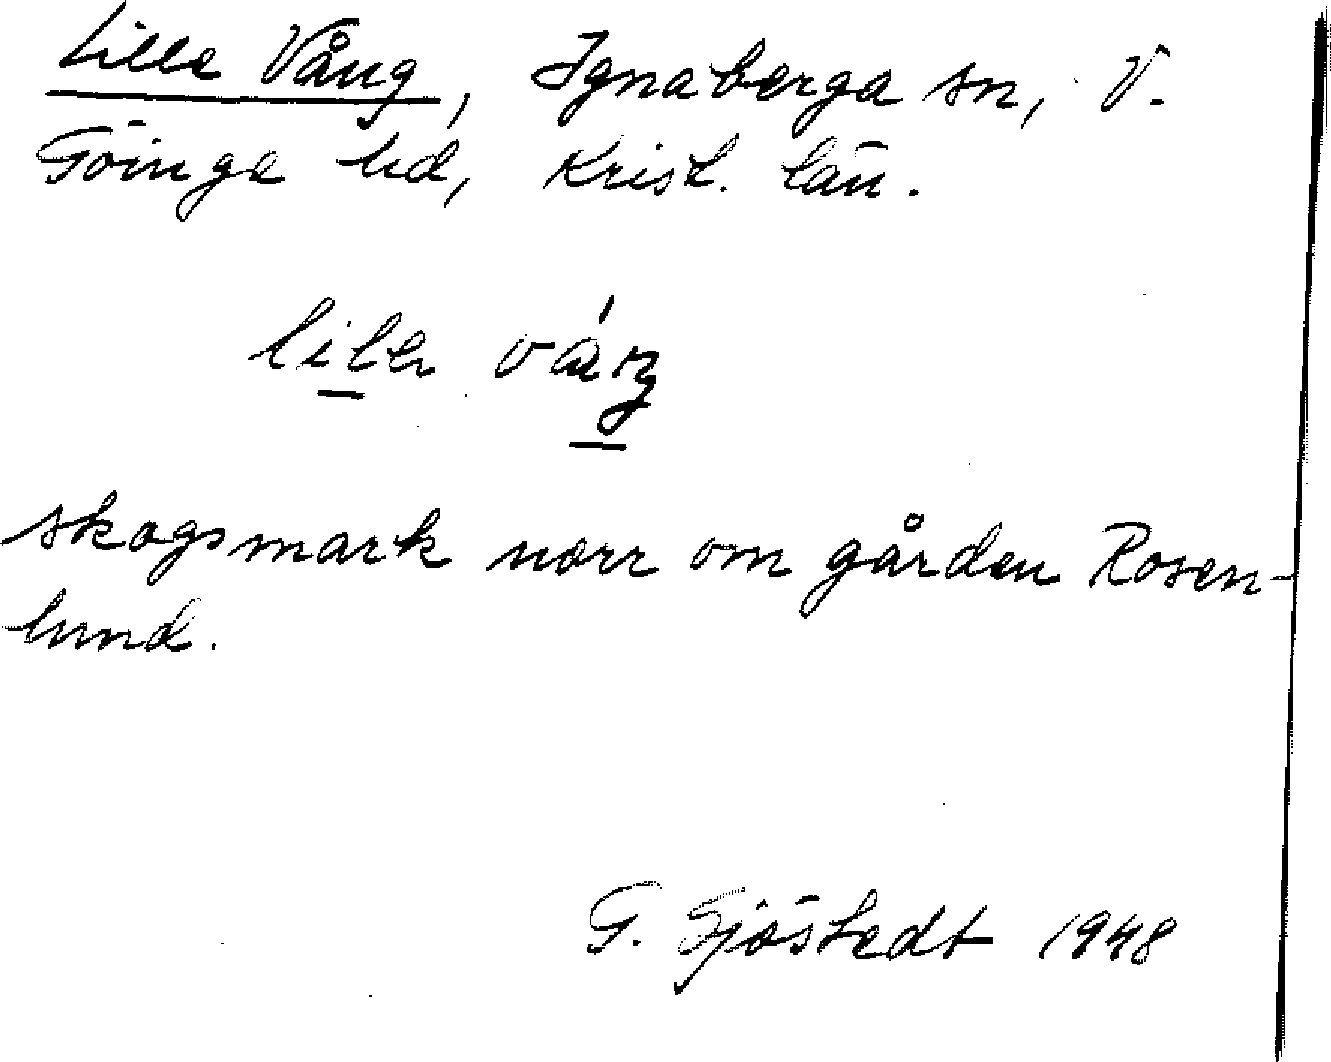 Lille Vång, Ignaberga sn, V.
Göinge hd, Krist. län.
skogsmark norr om gården Rosen-
lund.
G. Sjöstedt 1948